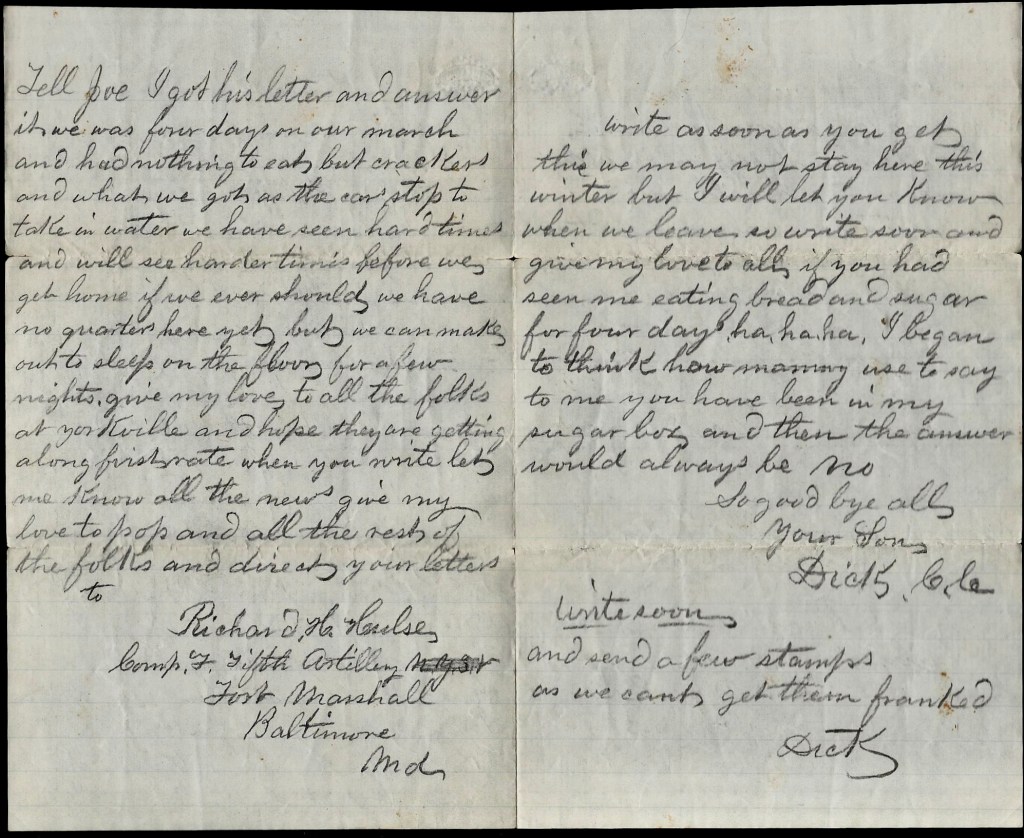 Tell Joe I got his letter and answer
it, we was four days on our march
and had nothing to eat, but crackers
and what we got as the car stop to
take in water we have seen hard times
and will see harder times before we
get home if we ever should, we have
no quarters here yet, but we can make
out to sleep on the floor for a few
nights. give my love to all the folks
at yorkville and hope they are getting
along first rate when you write let
me know all the news give my
love to pop and all the rest of
the folks and direct your letters
to
Richard, H. Hulse
Comp, F. Fifth Artillery
Fort Marshall
Baltimore
Md
write as soon as you get
this we may not stay here this
winter but I will let you know
when we leave so write soon and
give my love to all, if you had
seen me eating bread and sugar
for four days, ha, ha, ha, I began
to think how mammy use to say
to me you have been in my
sugar box, and then the answer
would always be no
So good bye all
Your Son
Dick,
Write soon
and send a few stamps
as we cant get them franked
Dick